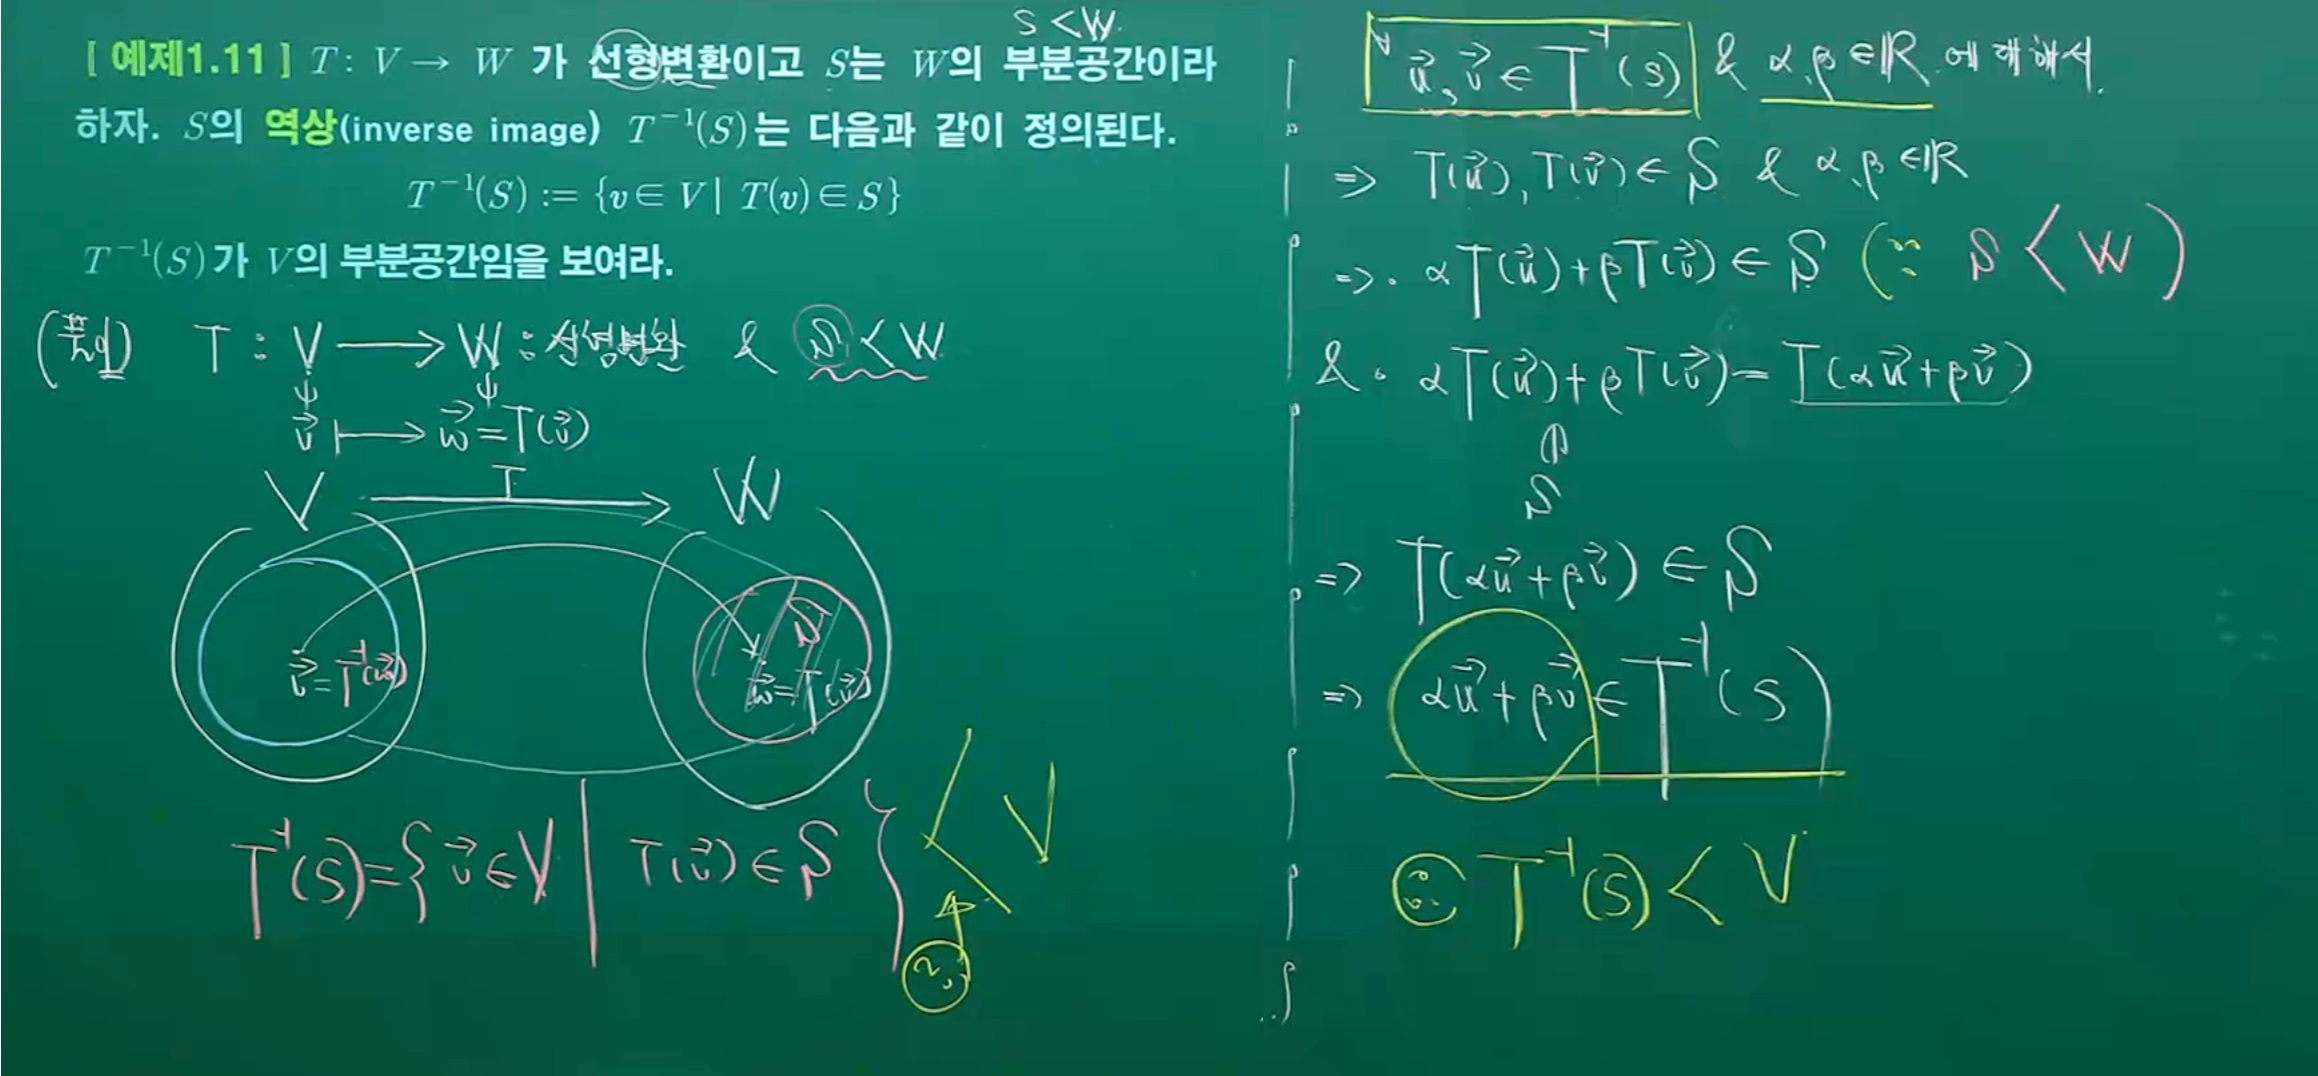 S < W.
[ 예제1.11 ] T : V → W 가 선형변환이고 S는 W의 부분공간이라
하자. S의 역상(inverse image) T⁻¹(S)는 다음과 같이 정의된다.
T⁻¹(S) := {v ∈ V | T(v) ∈ S}
T⁻¹(S)가 V의 부분공간임을 보여라.
(풀이) T : V → W : 선형변환 & S < W
ψ ψ
v⃗ ↦ w⃗ = T(v⃗)
V T→ W
S
v⃗ = T⁻¹(w⃗) w⃗ = T(v⃗)
T⁻¹(S) = { v⃗ ∈ V | T(v⃗) ∈ S } < V
?
∀ u⃗, v⃗ ∈ T⁻¹(S) & α, β ∈ ℝ 에 대해서.
⇒ T(u⃗), T(v⃗) ∈ S & α, β ∈ ℝ
⇒ · αT(u⃗) + βT(v⃗) ∈ S (∵ S < W)
& · αT(u⃗) + βT(v⃗) = T(αu⃗ + βv⃗)
⋒
S
⇒ T(αu⃗ + βv⃗) ∈ S
⇒ αu⃗ + βv⃗ ∈ T⁻¹(S)
∴ T⁻¹(S) < V